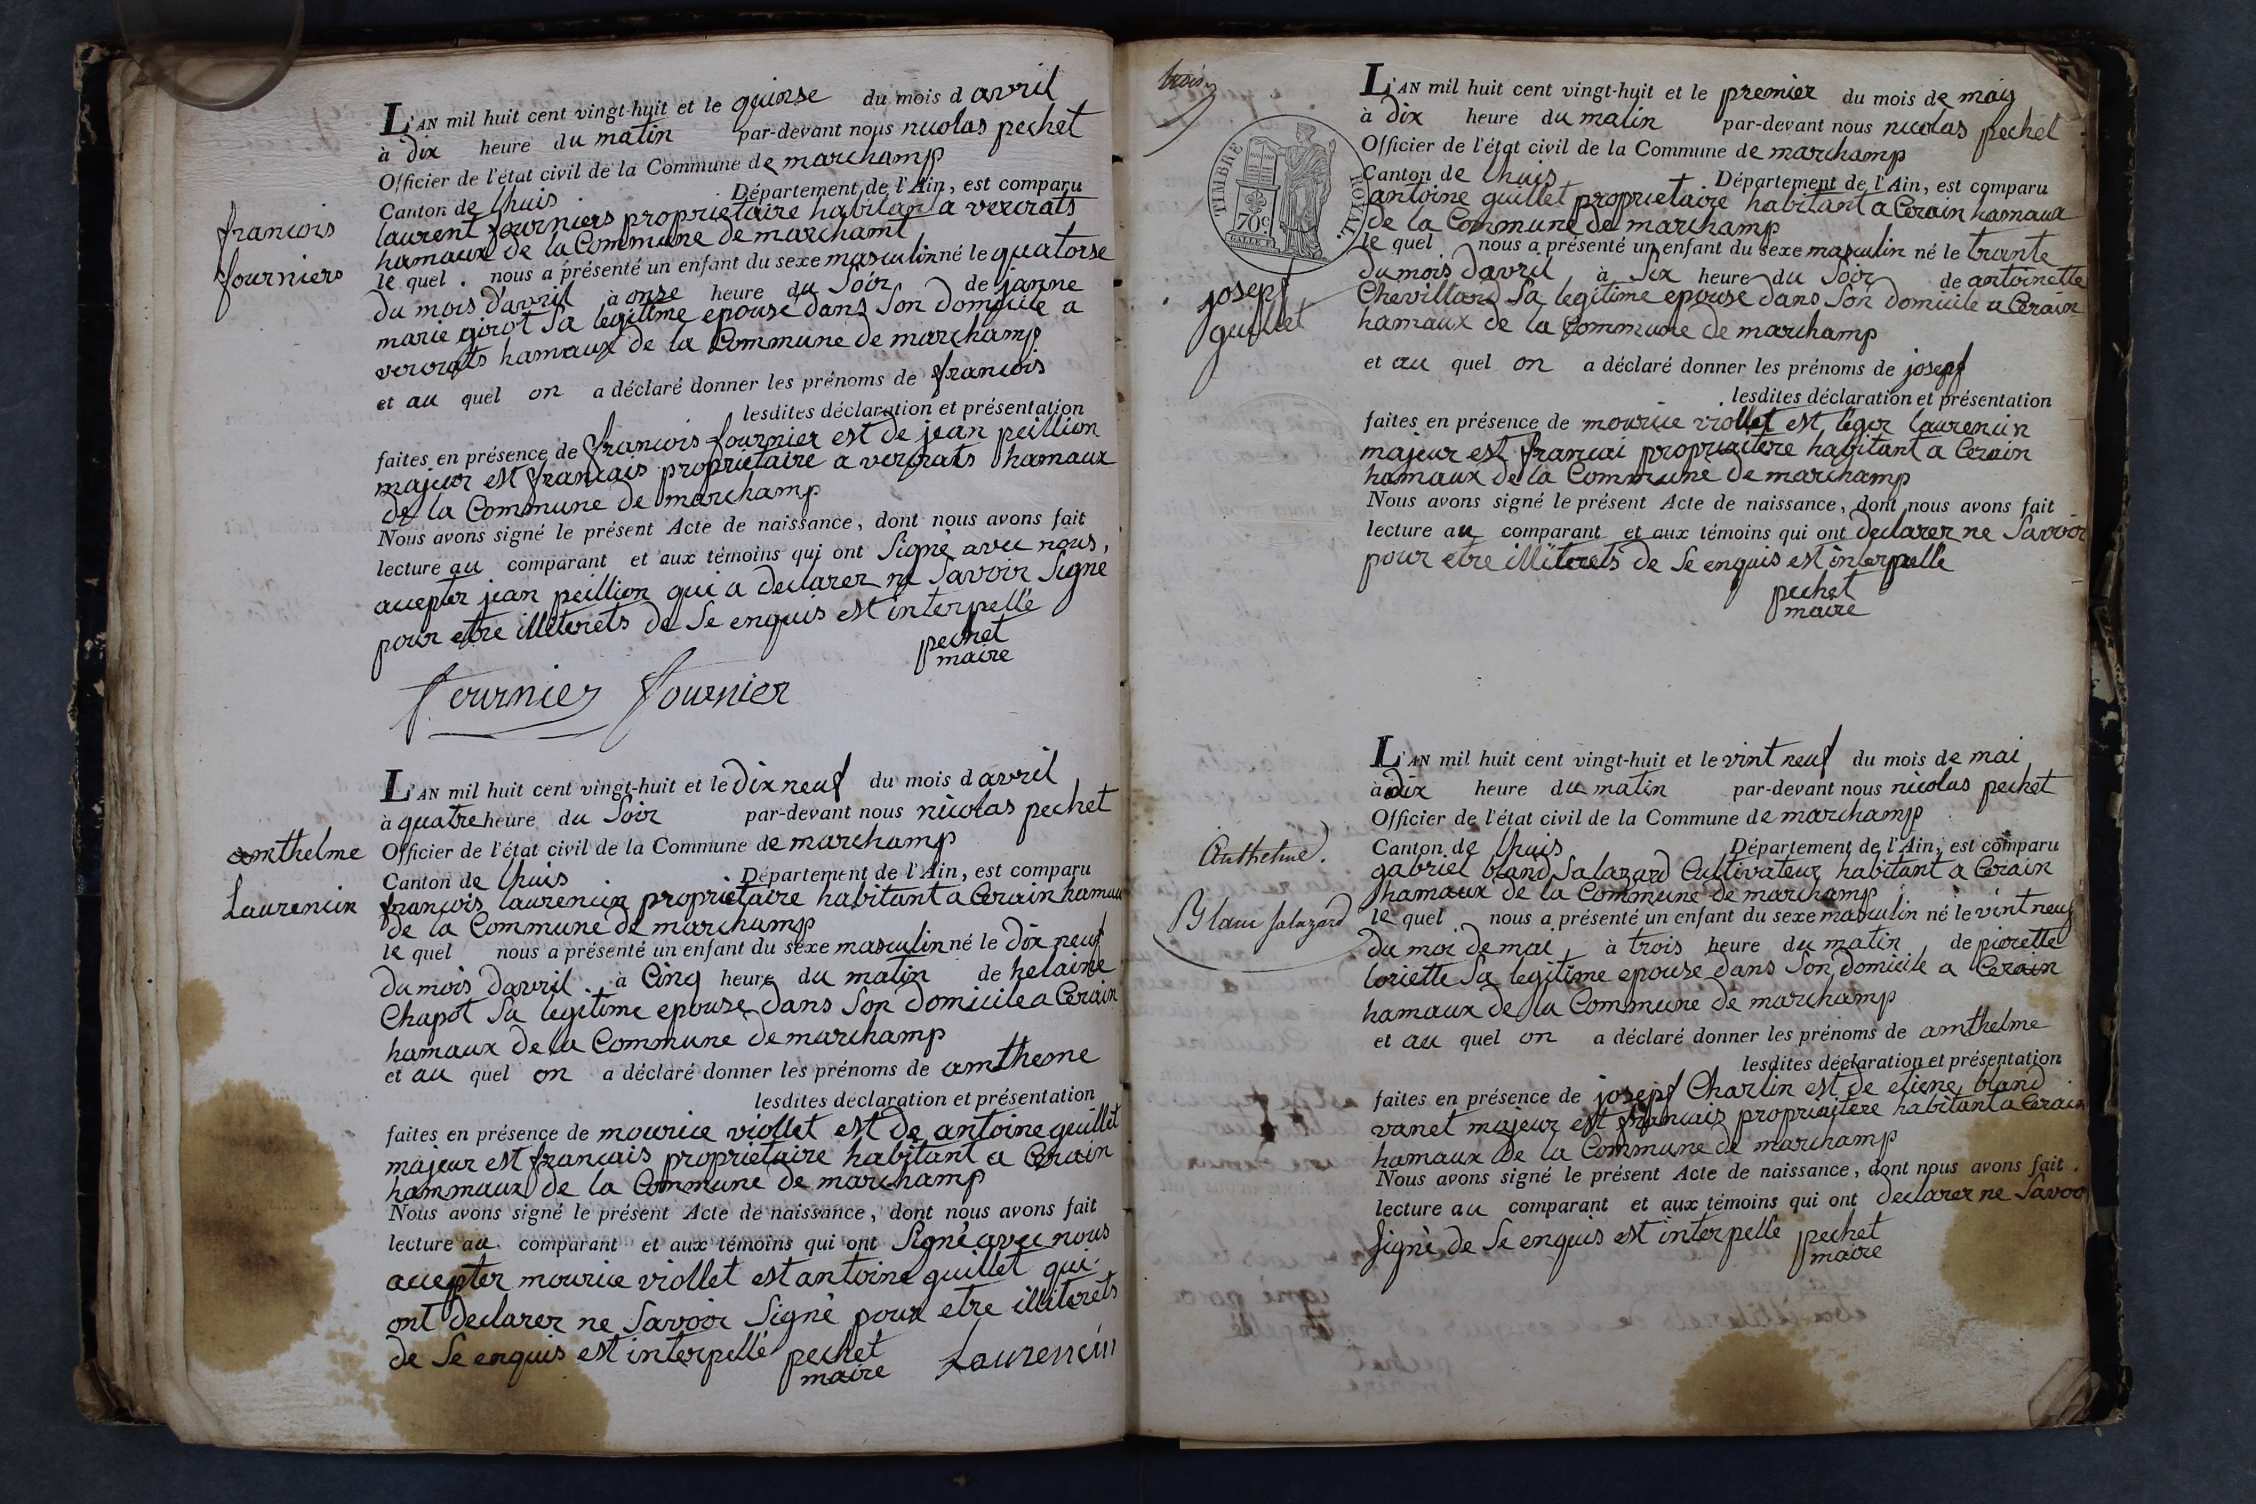 L'AN mil huit cent vingt-huit et le quinse du mois d avril
à dix heure du matin par-devant nous nicolas pechet
Officier de l'état civil de la Commune de marchamp
Canton de lhuis Département de l'Ain, est comparu
laurent fourniers proprietaire habitant a vercrats
hamaux de la Commune de marchamt
le quel nous a présenté un enfant du sexe masculin né le quatorse
du mois d'avril à onse heure du Soir de janne
marie girot Sa legitime epouse dans Son domicile a
vercrats hamaux de la Commune de marchamp
et au quel on a déclaré donner les prénoms de francois
lesdites déclaration et présentation
faites en présence de francois fournier est de jean peillion
majeur est francais proprietaire a vercrats hamaux
de la Commune de marchamp
Nous avons signé le présent Acte de naissance, dont nous avons fait
lecture au comparant et aux témoins qui ont Signè avec nous,
accepter jean peillion qui a declarer ne Savoir Signe
pour etre illiterets de Se enquis est interpellé
pechet
maire
fournier fournier
francois
fourniers
L'AN mil huit cent vingt-huit et le dix neuf du mois d avril
à quatre heure du Soir par-devant nous nicolas pechet
Officier de l'état civil de la Commune de marchamp
Canton de lhuis Département de l'Ain, est comparu
francois laurencin proprietaire habitant a Cerain hamaux
de la Commune de marchamp
le quel nous a présenté un enfant du sexe masculin né le dix neuf
du mois d'avril à Cinq heure du matin de helaine
Chapot Sa legitime epouse dans Son domicile a Cerain
hamaux de la Commune de marchamp
et au quel on a déclaré donner les prénoms de amtheme
lesdites déclaration et présentation
faites en présence de mourice viollet est de antoine geuillet
majeur est francais proprietaire habitant a Cerain
hammaux de la Commune de marchamp
Nous avons signé le présent Acte de naissance, dont nous avons fait
lecture au comparant et aux témoins qui ont Signè avec nous
accepter mourice viollet est antoine guillet qui
ont declarer ne Savoir Signè pour etre illiterets
de Se enquis est interpellé pechet
maire Laurencin
amthelme
Laurencin
trois
TIMBRE ROYAL.
70c
L'AN mil huit cent vingt-huit et le premier du mois de may
à dix heure du matin par-devant nous nicolas pechet
Officier de l'état civil de la Commune de marchamp
Canton de lhuis Département de l'Ain, est comparu
antoine guillet proprietaire habitant a Cerain hamaux
de la Commune de marchamp
le quel nous a présenté un enfant du sexe masculin né le trante
du mois d'avril à dix heure du Soir de antoinette
Chevilland Sa legitime epouse dans Son domicile a Cerain
hamaux de la Commune de marchamp
et au quel on a déclaré donner les prénoms de josepf
lesdites déclaration et présentation
faites en présence de mourice viollet est leger laurencin
majeur est francai propriaitere habitant a Cerain
hamaux de la Commune de marchamp
Nous avons signé le présent Acte de naissance, dont nous avons fait
lecture au comparant et aux témoins qui ont declarer ne Savoir
pour etre illiterets de Se enquis est interpelle
pechet
maire
josepf
guillet
L'AN mil huit cent vingt-huit et le vint neuf du mois de mai
à dix heure du matin par-devant nous nicolas pechet
Officier de l'état civil de la Commune de marchamp
Canton de lhuis Département de l'Ain, est comparu
gabriel bland Salazard Cultivateur habitant a Cerain
hamaux de la Commune de marchamp
le quel nous a présenté un enfant du sexe masculin né le vint neuf
du moi de mai à trois heure du matin de pierette
loriette Sa legitime epouse dans Son domicile a Cerain
hamaux de la Commune de marchamp
et au quel on a déclaré donner les prénoms de amthelme
lesdites déclaration et présentation
faites en présence de josepf Charlin est de etiene bland
vanet majeur est francais propriaitere habitant a Cerain
hamaux de la Commune de marchamp
Nous avons signé le présent Acte de naissance, dont nous avons fait
lecture au comparant et aux témoins qui ont declarer ne Savoir
Signè de Se enquis est interpelle pechet
maire
Anthelme.
Blanc Salazard